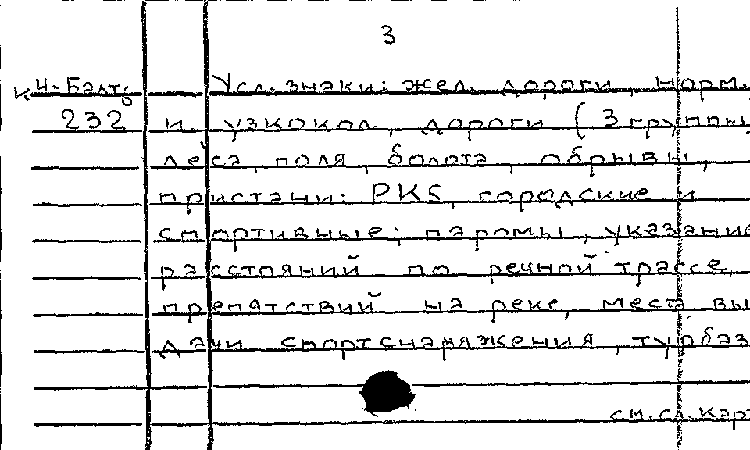 3
К Ч-Балт. Усл. знаки: жел. дороги, норм.
232 и узкокол. дороги (3 группы
леса, поля, болота, обрывы,
пристани: PKS, городские и
спортивные; паромы, указание
расстояний по речной трассе,
препятствий на реке, места вы
дачи спортснаряжения, турбаз
см. сл. карт